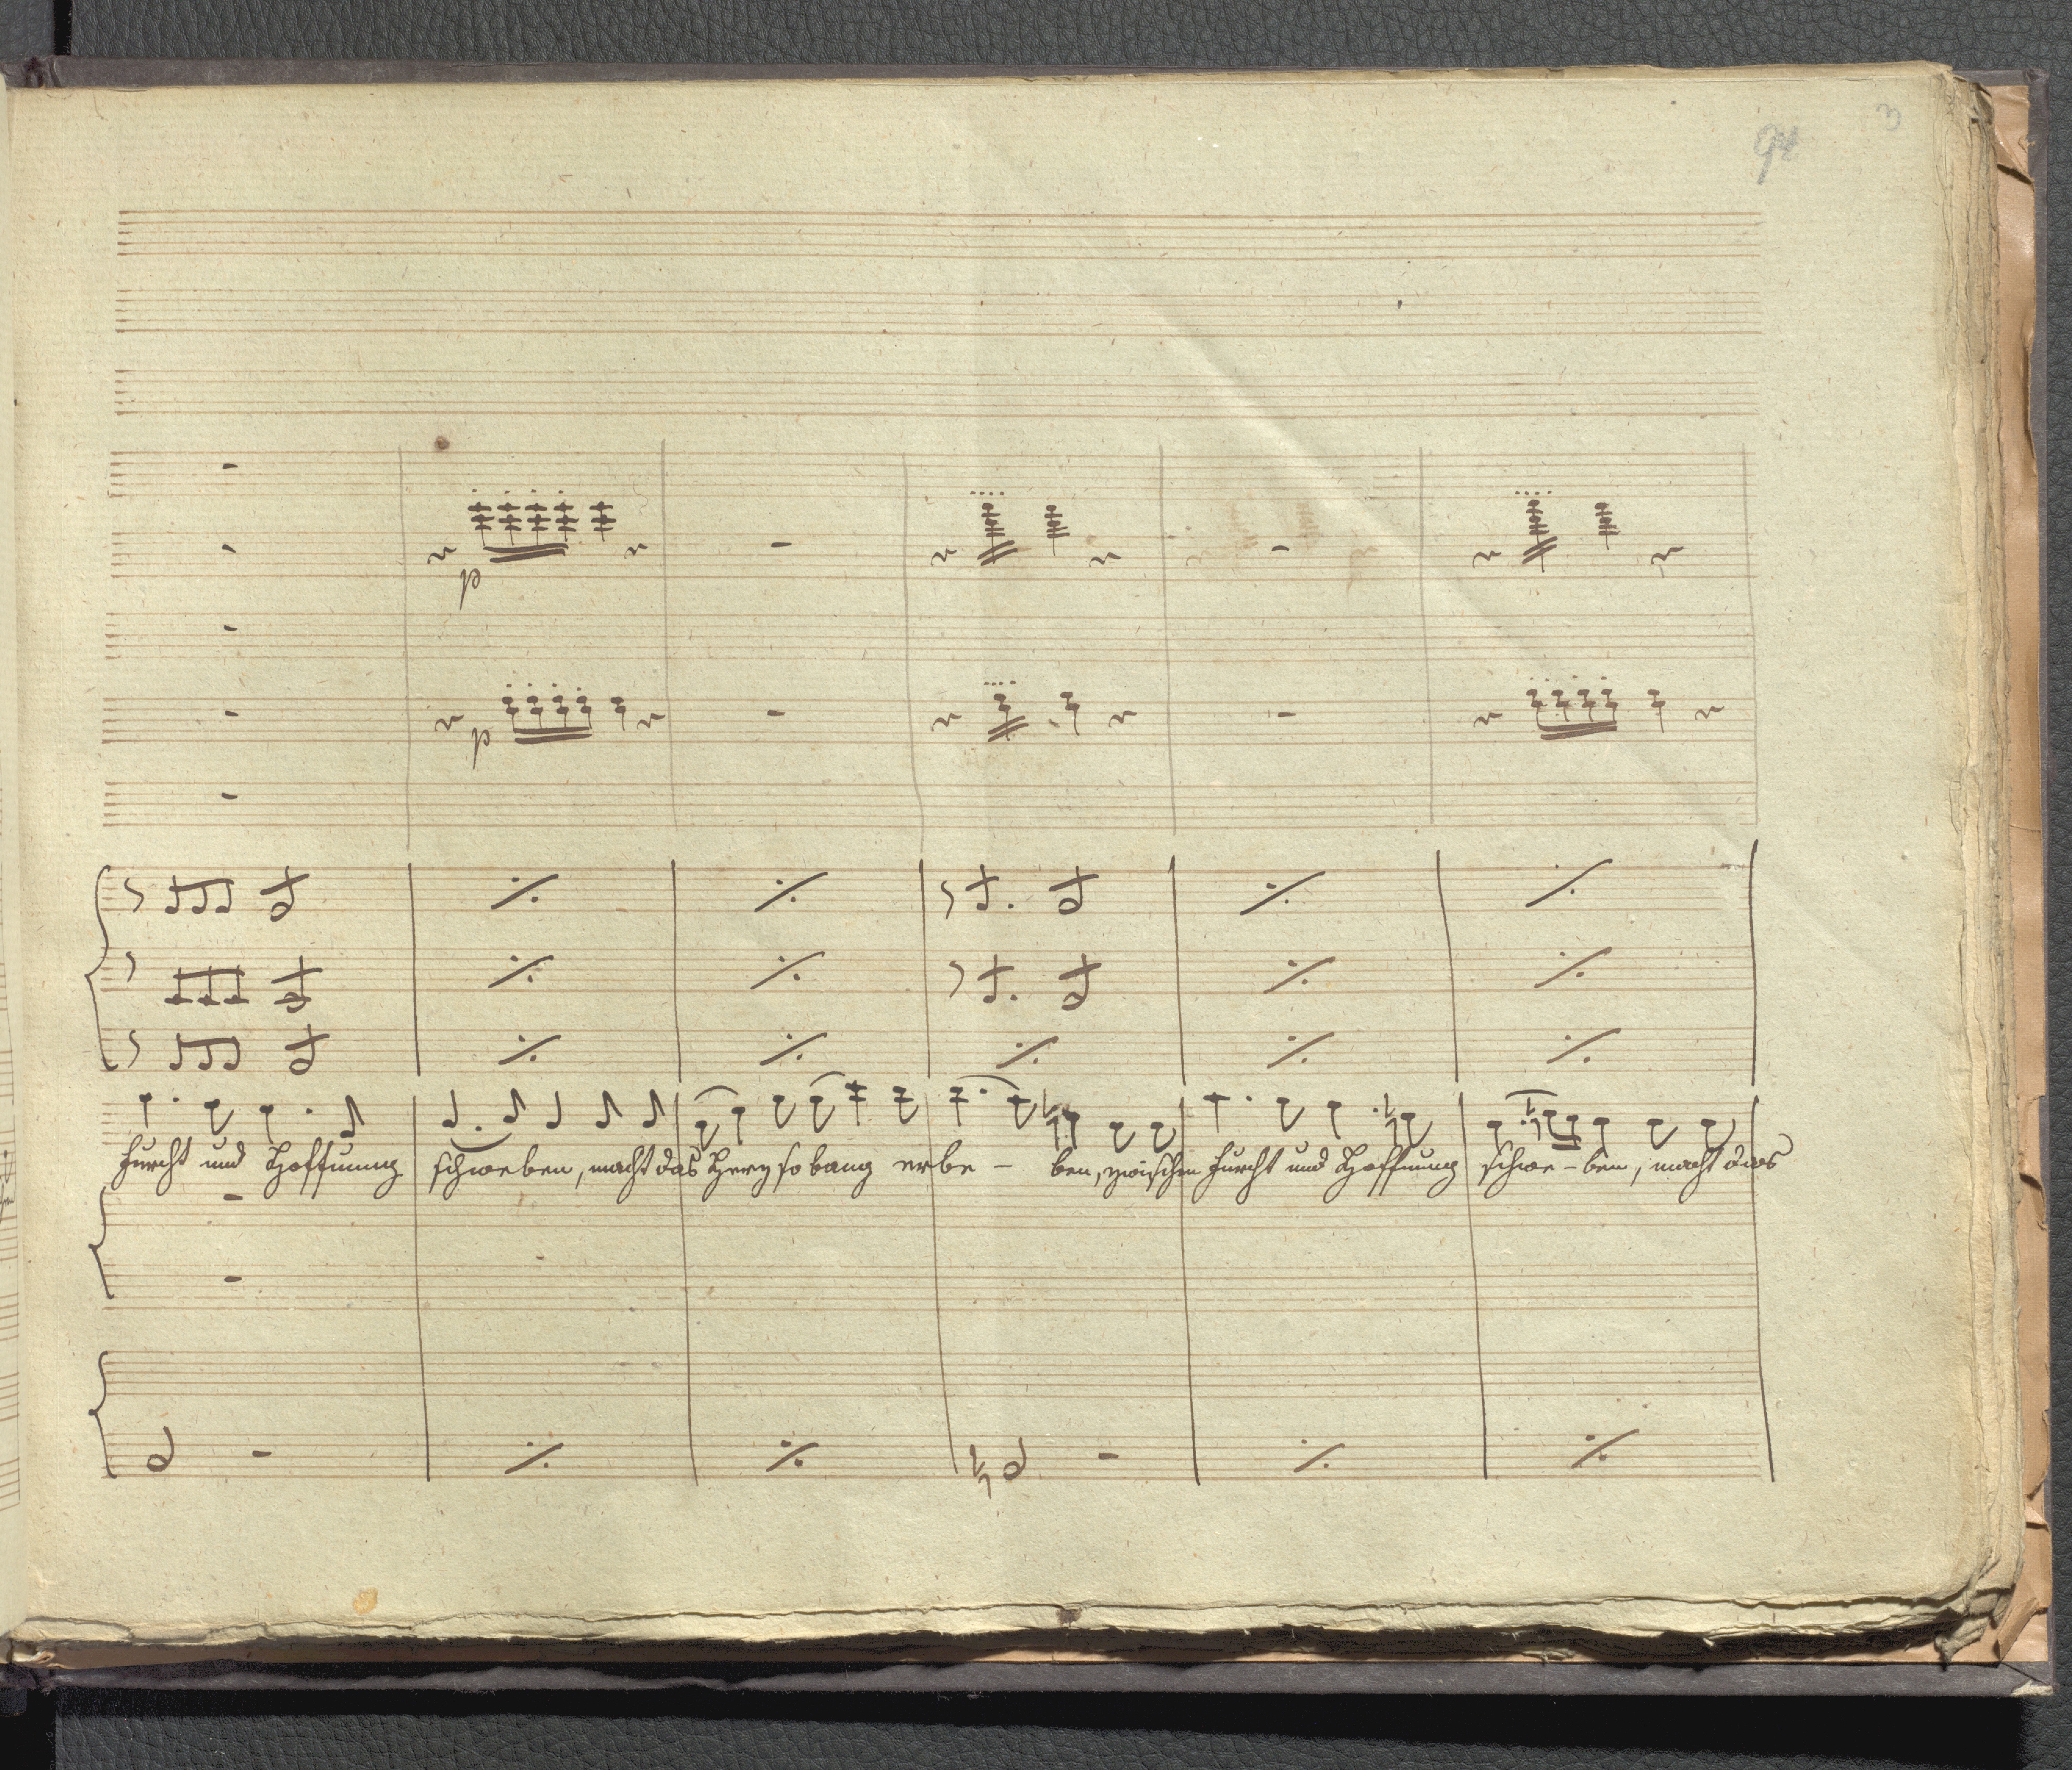 94
3
p
p
Furcht und Hoffnung schweben, macht das Herz so bang erbe - ben, zwischen Furcht und Hoffnung schwe - ben, macht das